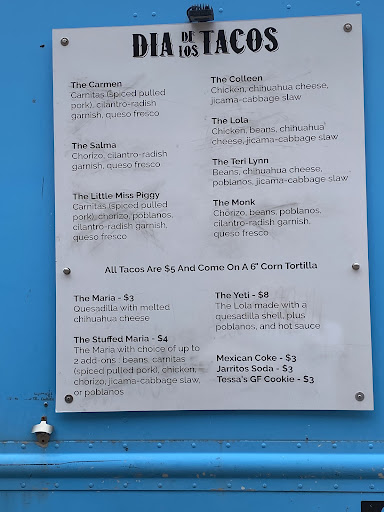 DIA DE LOS TACOS
The Carmen
Carnitas (spiced pulled
pork), cilantro-radish
garnish, queso fresco
The Salma
Chorizo, cilantro-radish
garnish, queso fresco
The Little Miss Piggy
Carnitas (spiced pulled
pork), chorizo, poblanos,
cilantro-radish garnish,
queso fresco
The Colleen
Chicken, chihuahua cheese,
jicama-cabbage slaw
The Lola
Chicken, beans, chihuahua
cheese, jicama-cabbage slaw
The Teri Lynn
Beans, chihuahua cheese,
poblanos, jicama-cabbage slaw
The Monk
Chorizo, beans, poblanos,
cilantro-radish garnish,
queso fresco
All Tacos Are $5 And Come On A 6" Corn Tortilla
The Maria - $3
Quesadilla with melted
chihuahua cheese
The Stuffed Maria - $4
The Maria with choice of up to
2 add-ons : beans, carnitas
(spiced pulled pork), chicken,
chorizo, jicama-cabbage slaw,
or poblanos
The Yeti - $8
The Lola made with a
quesadilla shell, plus
poblanos, and hot sauce
Mexican Coke - $3
Jarritos Soda - $3
Tessa's GF Cookie - $3